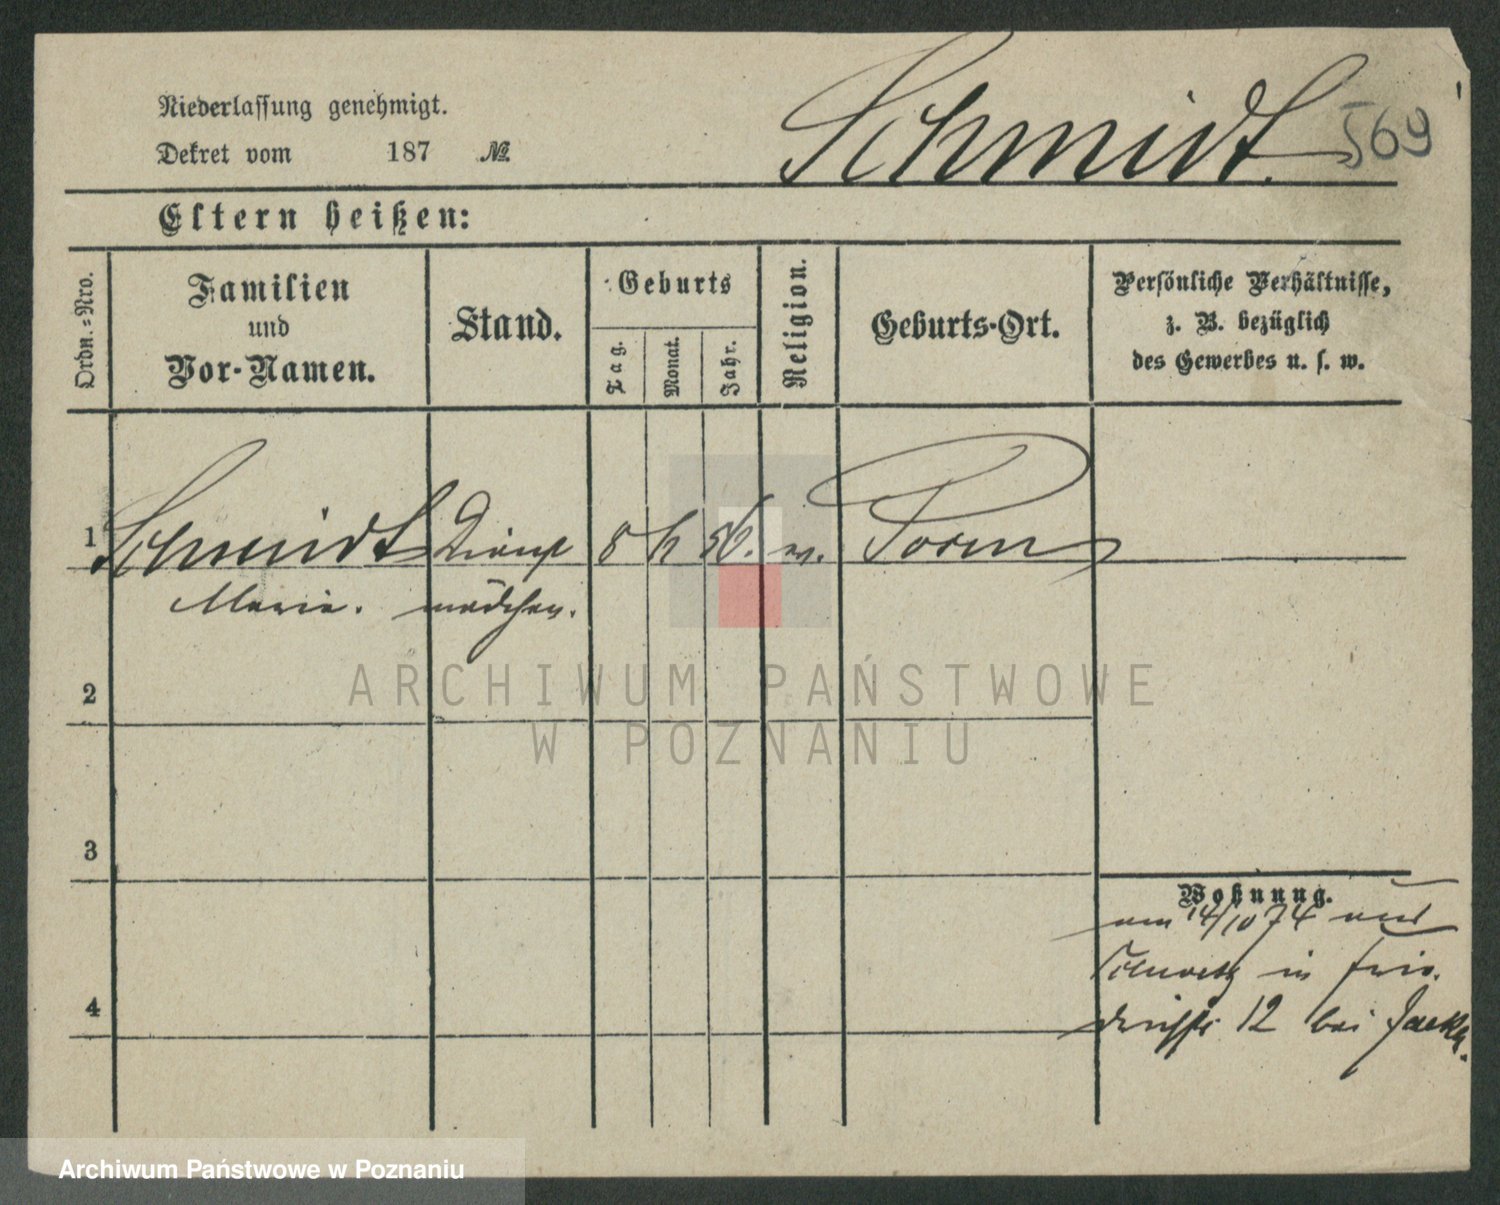 Niederlassung genehmigt.
Dekret vom 187 №
Schmidt.
569
Eltern heißen:
Ordn.=Nro.
Familien
und
Vor-Namen.
Stand.
Geburts
Tag.
Monat.
Jahr.
Religion.
Geburts-Ort.
Persönliche Verhältnisse,
z. B. bezüglich
des Gewerbes u. s. w.
1 Schmidt Dienst 8 56.
Marie. mädchen.
ARCHIWUM PAŃSTWOWE
2
W POZNANIU
3
Wohnung.
14/10 74
in Frie-
4
12 bei
Archiwum Państwowe w Poznaniu